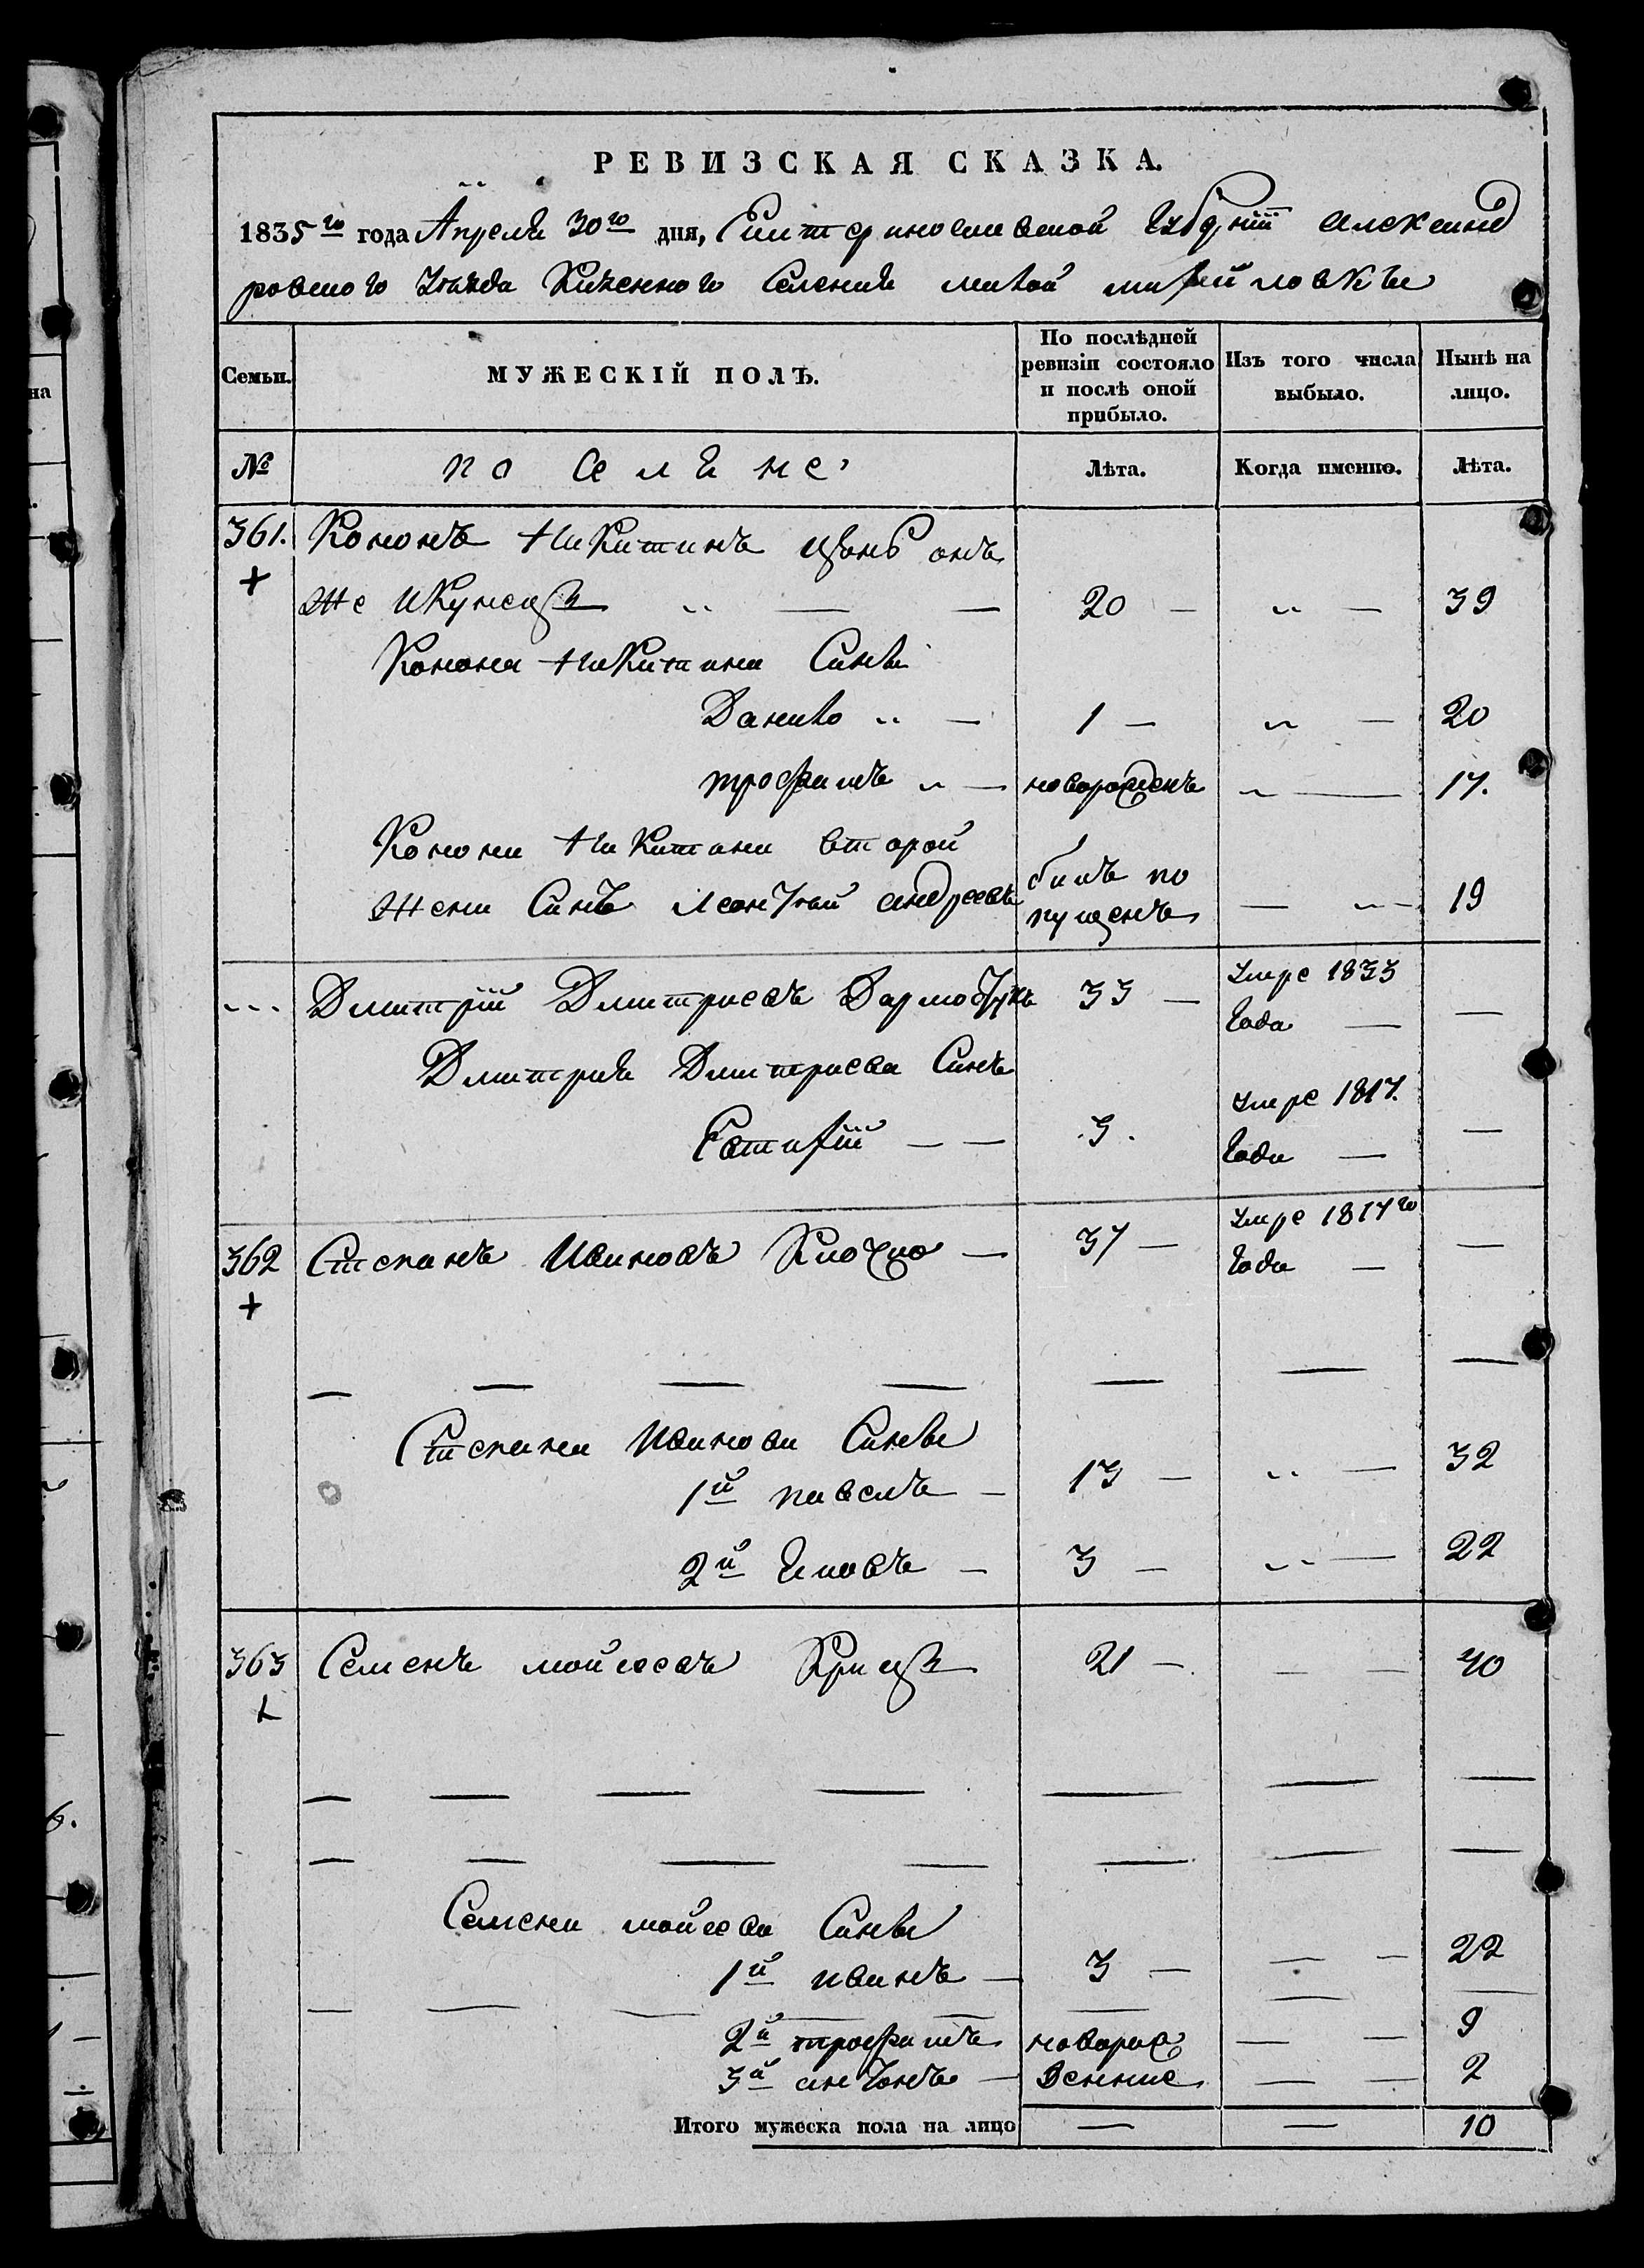 РЕВИЗСКАЯ СКАЗКА.
1835го года Апреля 30го дня, Екатеринославской Губерніи Александ
ровского Уезда Казенного Селения малой михайловки
Семьи.
МУЖЕСКІЙ ПОЛЪ.
По послѣдней ревизіи состояло и послѣ оной прибыло.
Изъ того числа выбыло.
Нынѣ на лицо.
№ поселяне Лѣта. Когда именно. Лѣта.
361. Кононъ Никитинъ онъ
же 20 — „ — 39
Конона Никитина Сины
Данило „ — 1 — „ — 20
трофимъ „ — новорожденъ „ — 17.
Конона Никитина второй
жени Синъ Леонтий андреевъ билъ по
пущенъ — „ — 19
Дмитрій Дмитриевъ 33 — Умре 1833
Года — —
Дмитрия Дмитриева Синъ
Евтифій — — 3. Умре 1817.
Года — —
362 Степанъ Ивановъ Клочко — 37 — Умре 1817го
Года — —
Степана Иванова Сины
1й павелъ — 13 — „ — 32
2й Яковъ — 3 — „ — 22
363 Семенъ мойсеевъ 21 — — — 40
Семена мойсева Сины
1й иванъ — 3 — — — 22
2й трофимъ новорож — — 9
3й антонъ — денние — — 2
Итого мужеска пола на лицо — — 10